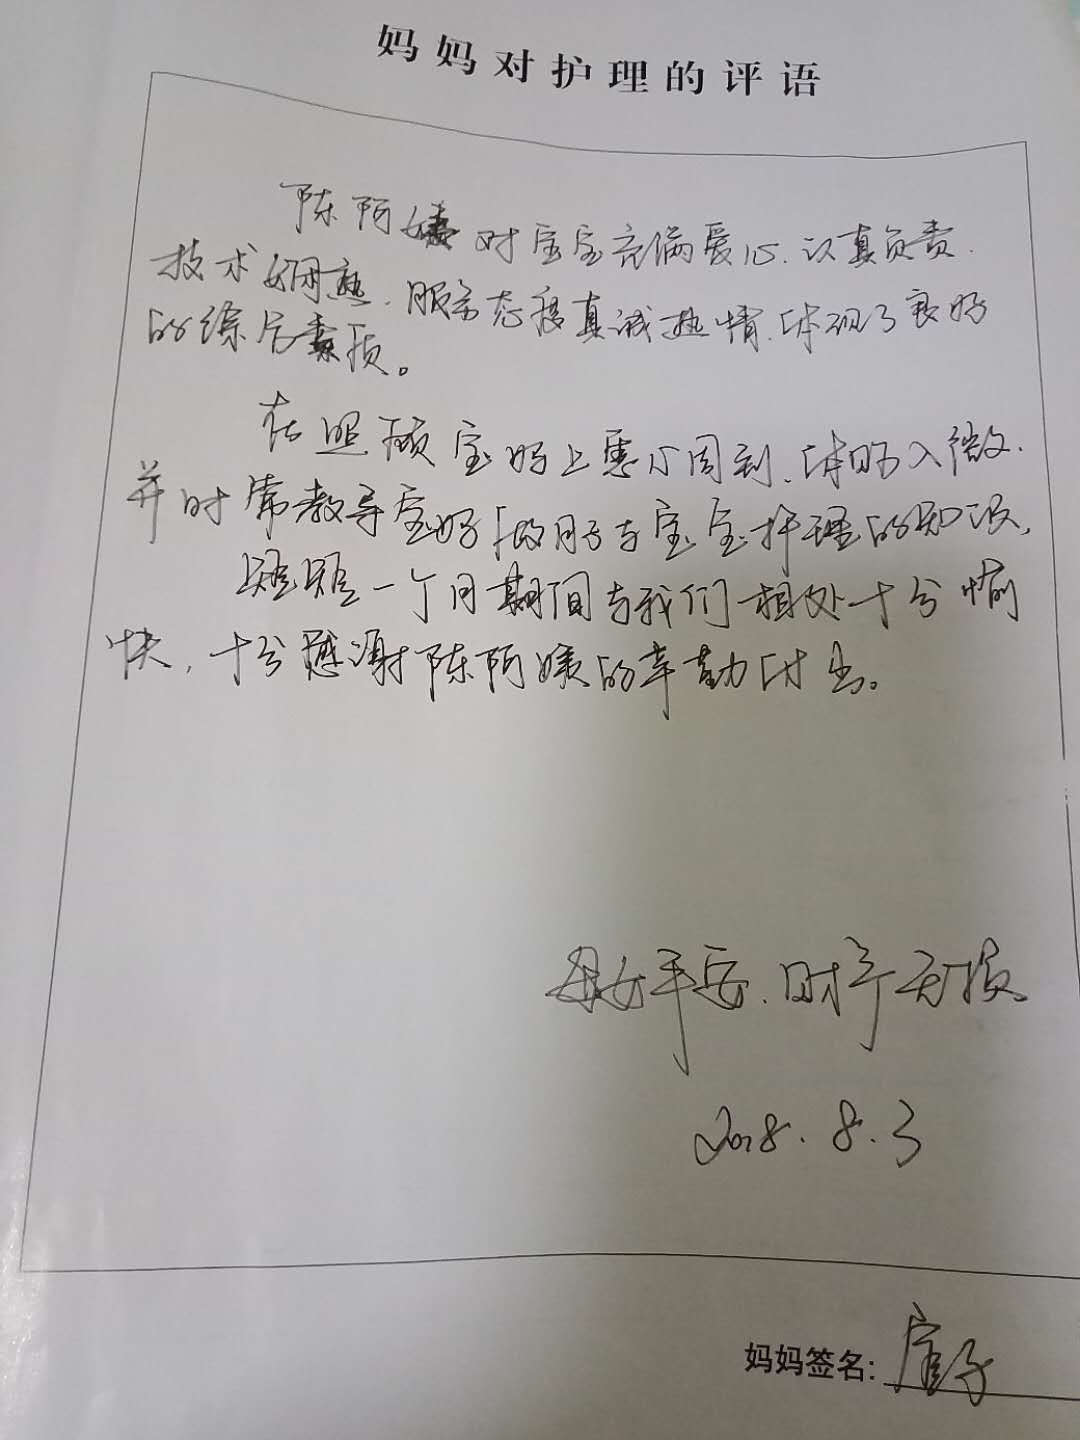 妈妈对护理的评语
陈阿姨对宝宝充满爱心、认真负责、
技术娴熟、服务态度真诚热情、体现了良好
的综合素质。
在照顾宝妈上悉心周到、体贴入微、
并时常教导宝妈做月子与宝宝护理的知识,
短短一个月期间与我们相处十分愉
快、十分感谢陈阿姨的辛勤付出。
母女平安、
2018.8.3
妈妈签名: